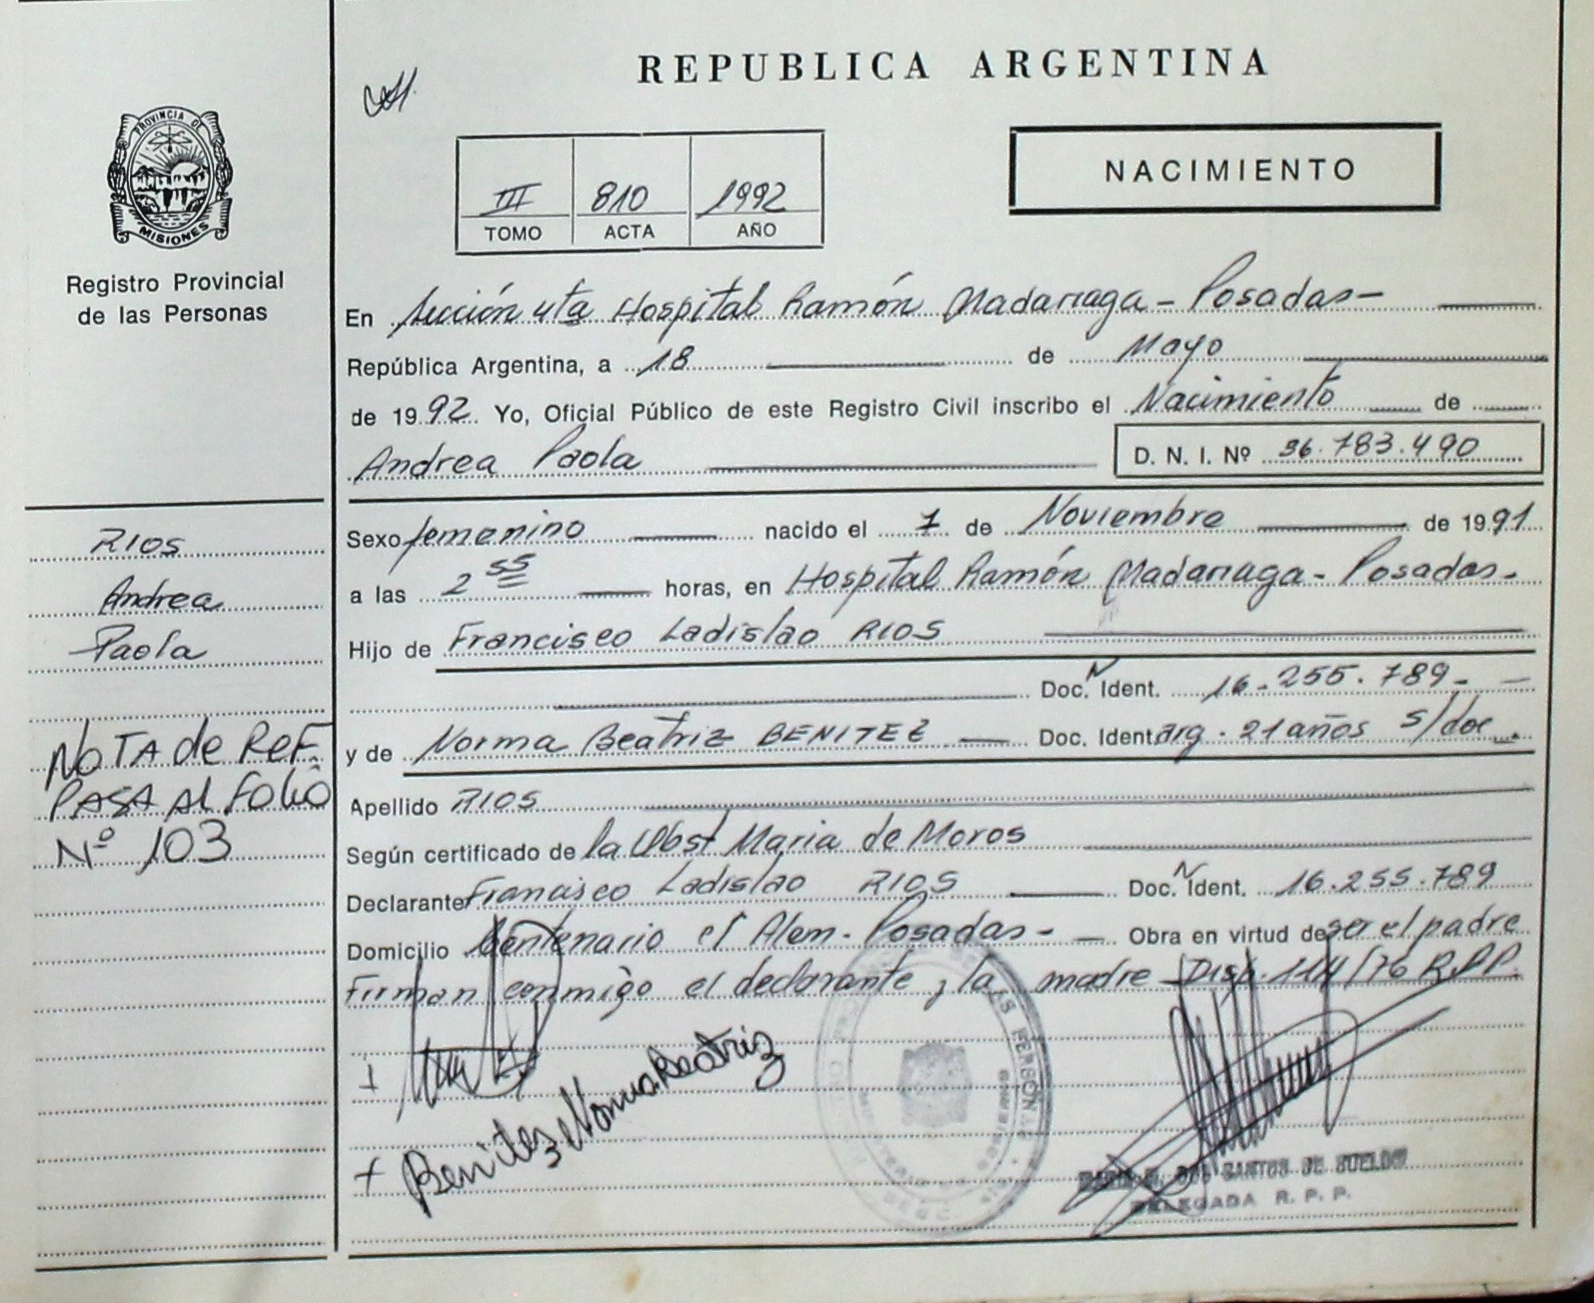 REPUBLICA ARGENTINA
PROVINCIA DE
MISIONES
Registro Provincial
de las Personas
III 810 1992
TOMO ACTA AÑO
NACIMIENTO
En Sección 4ta Hospital Ramón Madariaga - Posadas -
República Argentina, a 18 de Mayo
de 1992. Yo, Oficial Público de este Registro Civil inscribo el Nacimiento de
Andrea Paola D. N. I. Nº 36.783.490
Sexo femenino nacido el 1 de Noviembre de 1991
a las 2 55 horas, en Hospital Ramón Madariaga - Posadas -
Hijo de Francisco Ladislao RIOS
Doc. N Ident. 16.255.789 -
y de Norma Beatriz BENITEZ Doc. Ident arg. 21 años s/doc.
Apellido RIOS
Según certificado de la Obst Maria de Moros
Declarante Francisco Ladislao RIOS Doc. N Ident. 16.255.789
Domicilio Centenario el Alem - Posadas - Obra en virtud de ser el padre
Firman conmigo el declarante y la madre Disp. 114/76 R.P.P.
Benitez Norma Beatriz
DOS SANTOS DE
DELEGADA R. P. P.
RIOS
Andrea
Paola
NOTA de REF.
PASA Al FOLIO
Nº 103